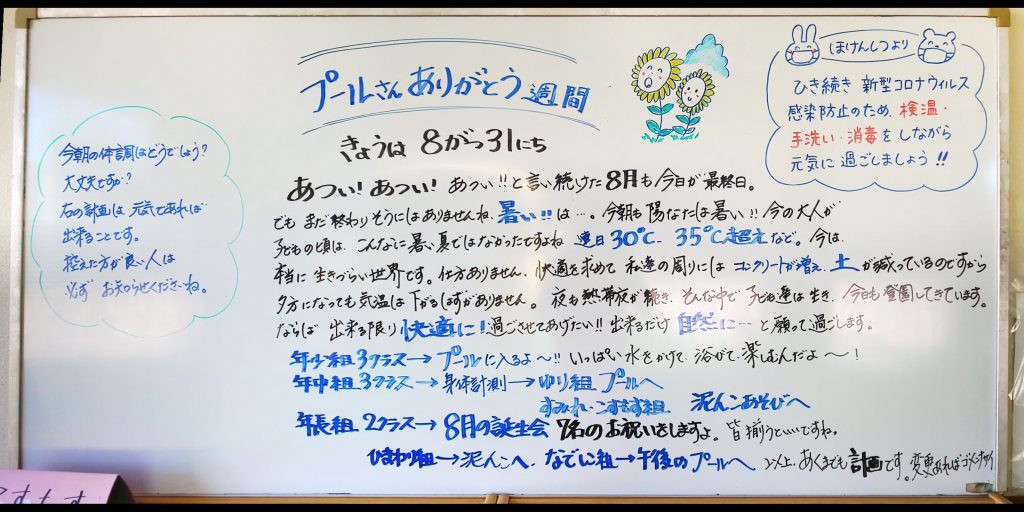 プールさんありがとう週間
きょうは 8がつ31にち
ほけんしつより
ひき続き 新型コロナウィルス
感染防止のため、検温・
手洗い・消毒をしながら
元気に過ごしましょう!!
今朝の体調はどうでしょう?
大丈夫ですか?
右の計画は元気であれば
出来ることです。
控えた方が良い人は
必ず お知らせくださいね。
あつい! あつい! あつい!!と言い続けた8月も今日が最終日。
でも まだ終わりそうにはありませんね、暑い!!は…。今朝も陽なたは暑い!! 今の大人が
子どもの頃は、こんなに暑い夏ではなかったですよね 連日30℃、35℃超えなど。今は、
本当に生きづらい世界です。仕方ありません、快適を求めて 私達の周りには コンクリートが増え、土が減っているのですから
夕方になっても気温は下がるはずがありません。夜も熱帯夜が続き、そんな中で子ども達は生き、今日も登園してきています。
ならば 出来る限り快適に!過ごさせてあげたい!! 出来るだけ 自然に…と願って過ごします。
年少組3クラス→プールに入るよ〜!! いっぱい水をかけて、浴びて、楽しむんだよ〜!
年中組3クラス→身体計測→ゆり組 プールへ
すみれ・こすもす組 泥んこあそびへ
年長組2クラス→8月の誕生会 7名のお祝いをしますよ。皆揃うといいですね。
ひまわり組→泥んこへ、なでしこ組→午後のプールへ 以上、あくまでも計画です。変更あればゴメンナサイ